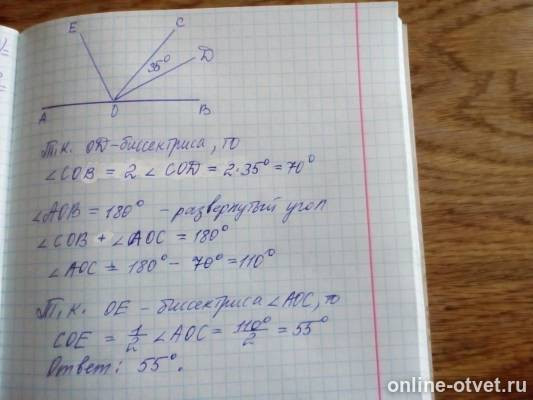 E
C
35°
D
A
O
B
Т.к. OD - биссектриса, то
∠COB = 2 ∠COD = 2·35° = 70°
∠AOB = 180° - развернутый угол
∠COB + ∠AOC = 180°
∠AOC = 180° - 70° = 110°
Т.к. OE - биссектриса ∠AOC, то
COE = 1/2 ∠AOC = 110°/2 = 55°
Ответ: 55°.
online-otvet.ru